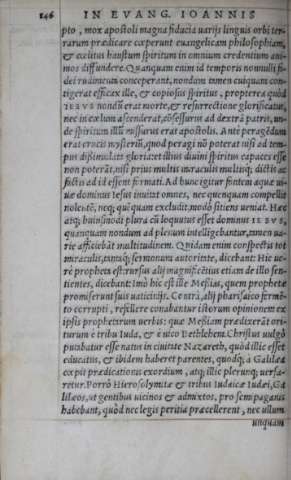 246 IN EVANG. IOANNIS
pto, mox apostoli magna fiducia uarijs linguis orbi ter-
rarum prædicare cœperunt euangelicam philosophiam,
& cœlitus haustum spiritum in omnium credentium ani-
mos diffundere. Quanquam enim id temporis nonnulli fi-
dei rudimentum conceperant, nondum tamen cuiquam con-
tigerat efficax ille, & copiosus spiritus, propterea quòd
IESVS nondū erat morte, & resurrectione glorificatus,
nec in cœlum ascenderat, cōsessurus ad dextrā patris, un-
de spiritum illū missurus erat apostolis. Ante peragēdum
erat crucis mysteriū, quod peragi nō poterat nisi ad tem-
pus dissimulata gloria: et illius diuini spiritus capaces esse
non poterāt, nisi prius multis miraculis multisq; dictis ac
factis ad id essent formati. Ad hunc igitur fontem aquæ ui-
uæ dominus Iesus inuitat omnes, nec quenquam compellit
nolentē, neq; quē quam excludit, modò sitiens ueniat. Hæc
atq; huiusmodi plura cū loquutus esset dominus IESVS,
quanquam nondum ad plenum intelligebantur, tamen ua-
rie afficiebāt multitudinem. Quidam enim conspectis tot
miraculis, tantaq; sermonum autoritate, dicebant: Hic ue-
rè propheta est: rursus alij magnificētius etiam de illo sen-
tientes, dicebant: Imò hic est ille Messias, quem prophetæ
promiserunt suis uaticinijs. Contrà, alij pharisaico fermē-
to corrupti, refellere conabantur istorum opinionem ex
ipsis prophetarum uerbis: quæ Messiam prædixerāt ori-
turum è tribu Iuda, & è uico Bethlehem. Christus uulgò
putabatur esse natus in ciuitate Nazareth, quòd illic esset
educatus, & ibidem haberet parentes, quodq; à Galilæa
cœpit prædicationis exordium, atq; illic plerunq; uersa-
retur. Porrò Hierosolymitæ & tribus Iudaicæ Iudæi, Ga
lilæos, ut gentibus uicinos & admixtos, pro semipaganis
habebant, quòd nec legis peritia præcellerent, nec ullum
unquam